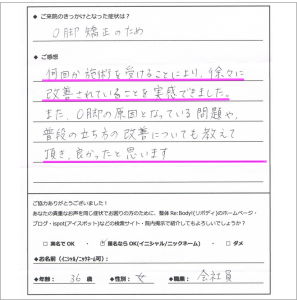 ◆ ご来院のきっかけとなった症状は？
O脚矯正のため
◆ ご感想
何回か施術を受けることにより、徐々に
改善されていることを実感できました。
また、O脚の原因となっている問題や、
普段の立ち方の改善についても教えて
頂き、良かったと思います
ご協力ありがとうございました！
あなたの貴重なお声を同じ症状でお困りの方のために、整体 Re:Body!(リボディ)のホームページ・
ブログ・ispot(アイスポット)などの検索サイト・院内掲示で紹介してもよろしいでしょうか？
□ 実名で OK ・ 匿名なら OK(イニシャル/ニックネーム) ・ □ ダメ
◆お名前 (イニシャル/ニックネーム可):
◆年齢： 36 歳 ◆性別： 女 ◆職業： 会社員